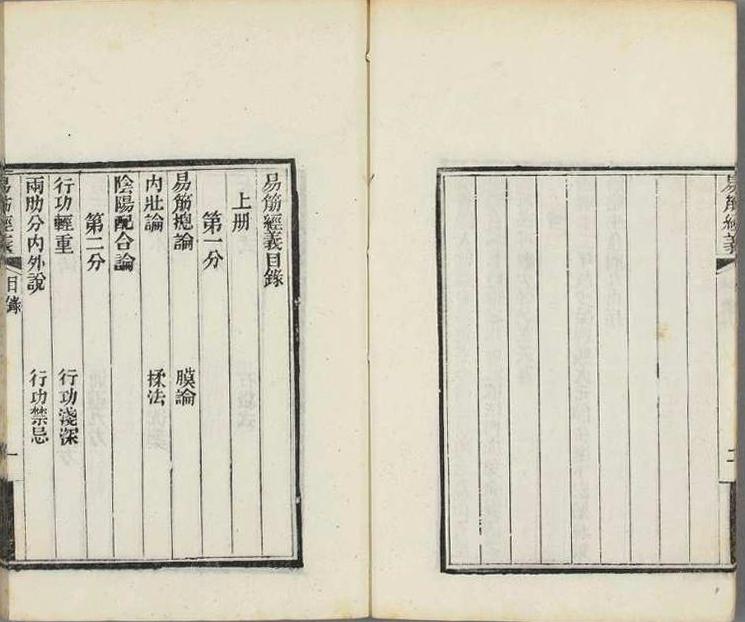 易筋經義
二
易筋經義目錄
上册
第一分
易筋摠論 膜論
內壯論 揉法
陰陽配合論
第二分
行功輕重 行功淺深
兩肋分內外說 行功禁忌
易筋經義 目錄 一